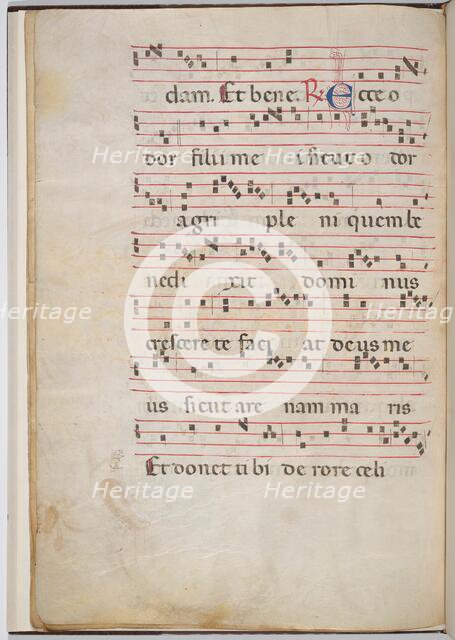 dam. Et bene. R Ecce o
dor filii me i sicut o dor
agri ple ni quem be
nedi xit domi nus
crescere te faci at deus me
us sicut are nam ma ris
Et donet tibi de rore celi
Heritage Heritage
Heritage Heritage
Heritage Heritage
C